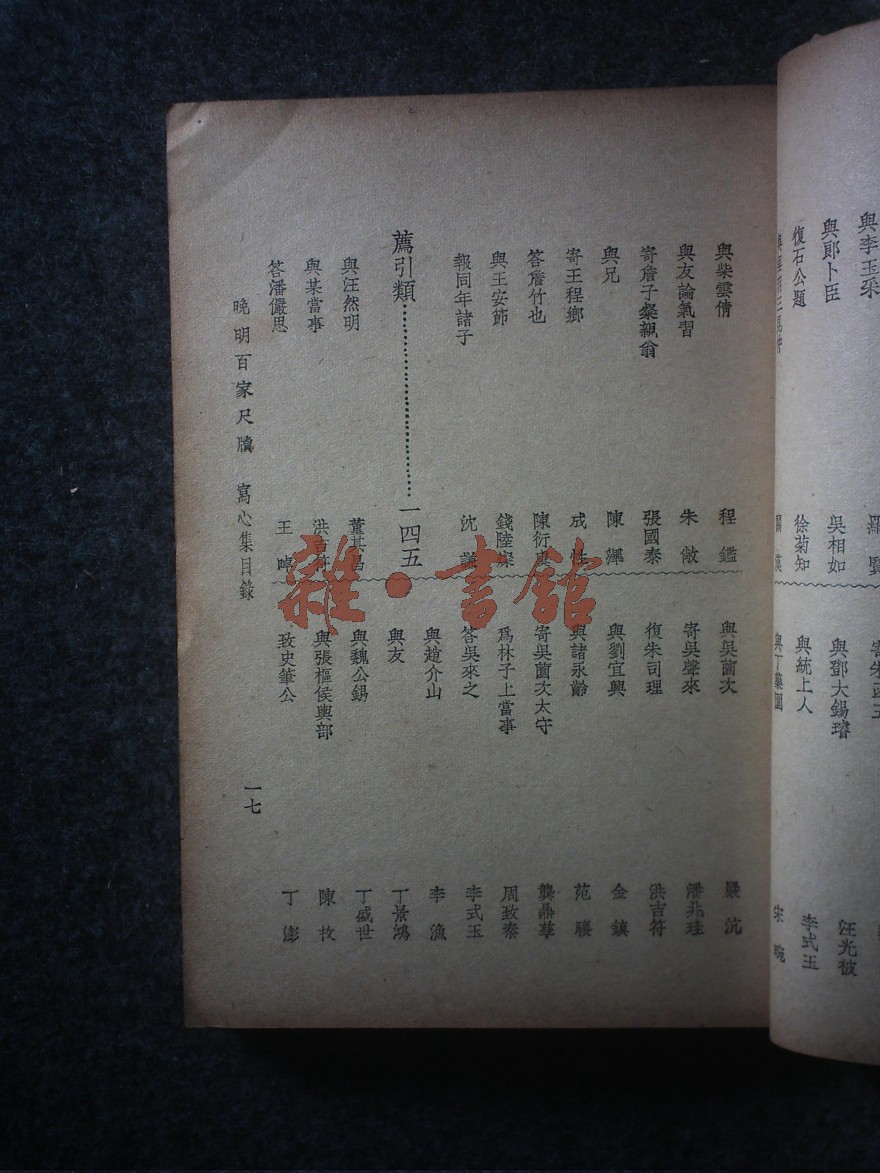 與李玉采
與郎卜臣 吳相如
復石公題 徐菊知
與鄧大錫璿 汪光被
與統上人 李式玉
與丁藥園 宋 琬
與柴雲倩 程 鑑
與友論氣習 朱 敞
寄詹子粲飆翁 張國泰
與兄 陳 㷄
寄王程鄉 成 性
答詹竹也 陳衍虞
與王安節 錢陸燦
報同年諸子 沈 謙
薦引類 一四五
與汪然明 董其昌
與某當事 洪吉符
答潘儼思 王 晫
與吳薗次 嚴 沆
寄吳聲來 潘兆珪
復朱司理 洪吉符
與劉宜興 金 鎮
與諸永齡 范 驤
寄吳薗次太守 龔鼎孳
爲林子上當事 周致秦
答吳來之 李式玉
與趙介山 李 漁
與友 丁景鴻
與魏公錫 丁盛世
與張樞侯輿部 陳 枚
致史筆公 丁 澎
晚明百家尺牘 寫心集目錄 一七
雜·書館